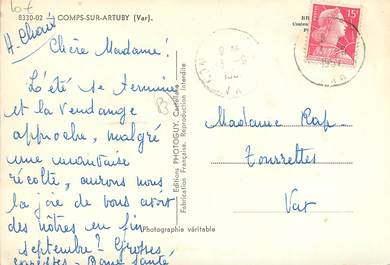 8330-02 COMPS-SUR-ARTUBY (Var).
Chère Madame!
L'été se termine
et la vendange
approche, malgré
une mauvaise
récolte, aurons nous
la joie de vous avoir
des nôtres en fin
septembre? Grosses
caresses - Bonne Santé
Editions PHOTOGUY,
Fabrication Française. Reproduction interdite
Photographie véritable
15F
Madame Rap
Tourrettes
Var
B